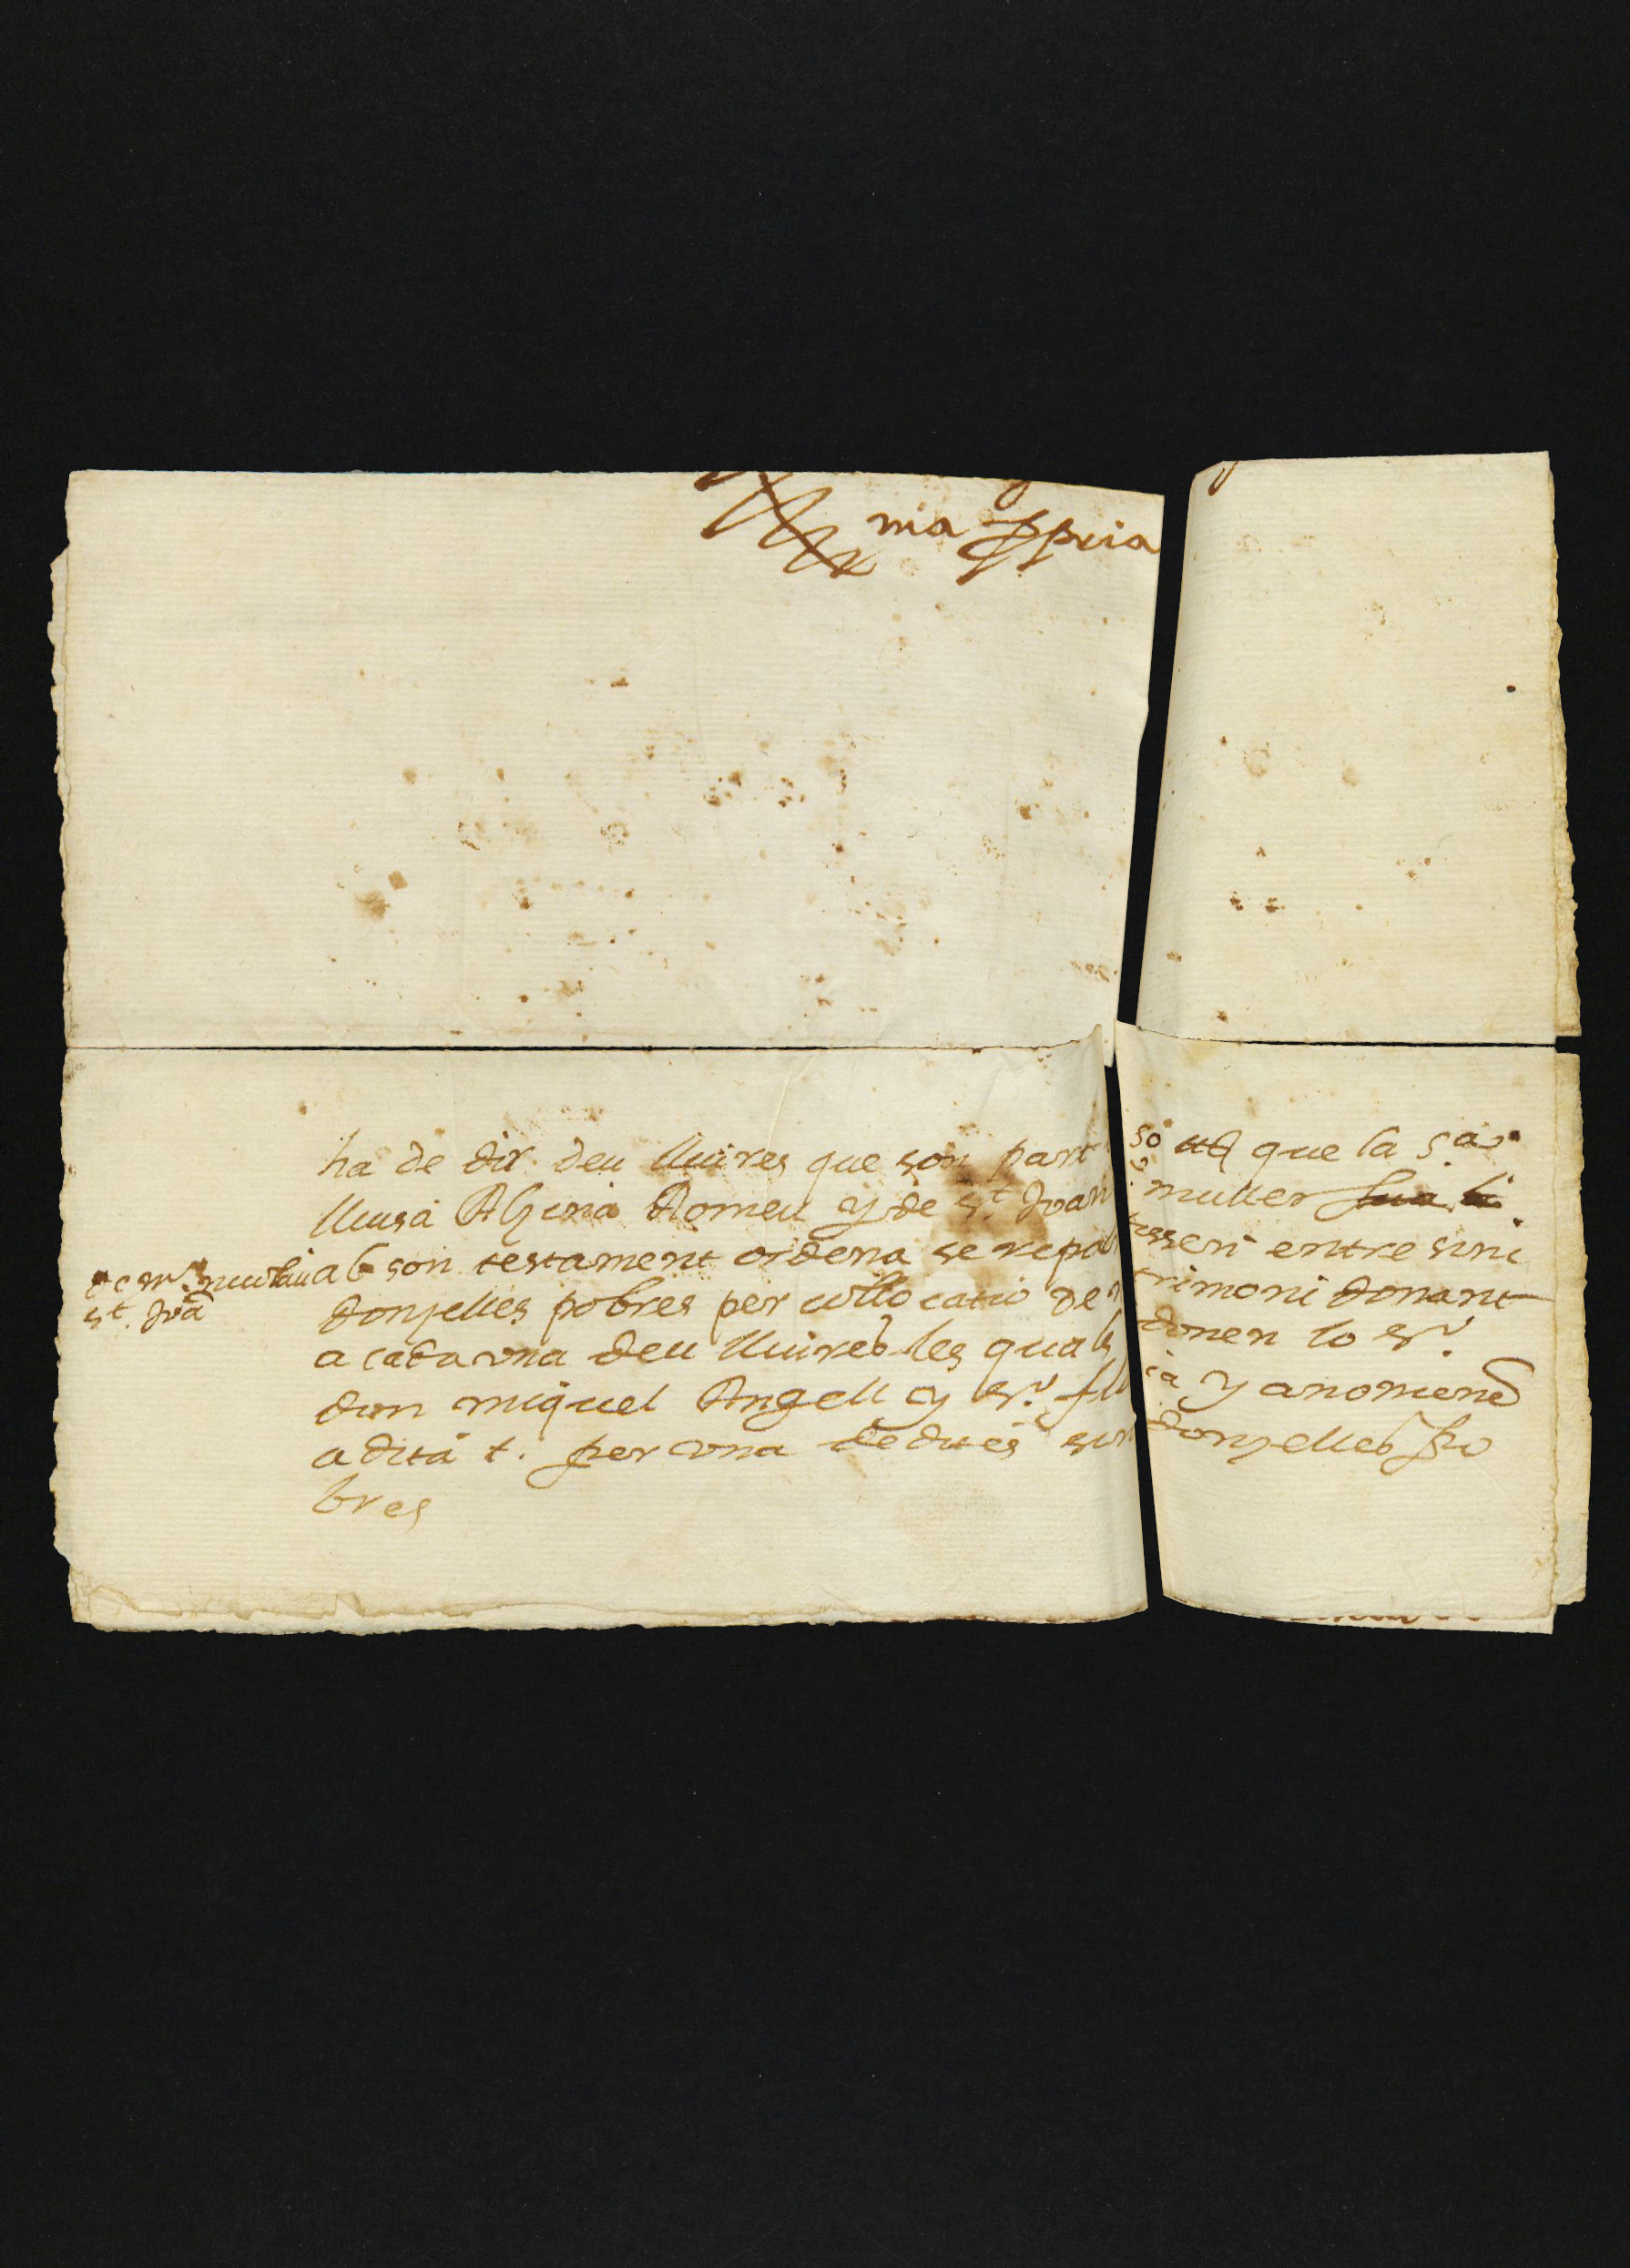 ma ppria
ha de dir deu lliures que son part so es que la s.ra
llusa Alzina Romeu y de s.t Joan muller sua
de m.r nicolau
s.t Joã
ab son testament ordena se repartissen entre sinc
donzelles pobres per collocatio de matrimoni donant
a cada una deu lliures les quals donen lo s.r
don miquel Angell y s.r y anomene
a dita t. per una de dites sinc donzelles po
bres